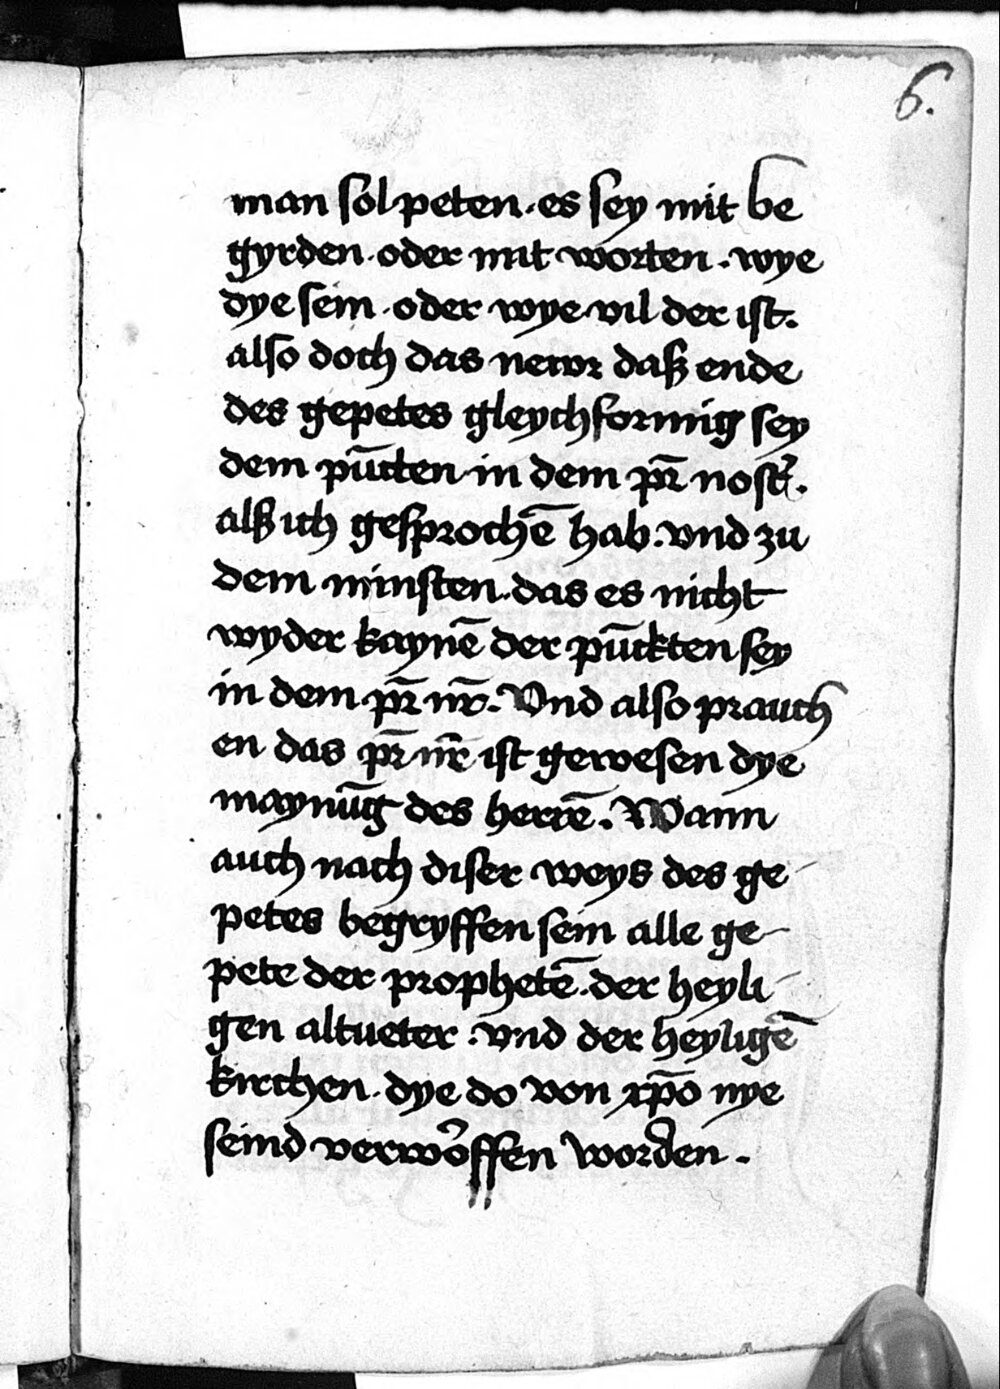 6.
man sol peten. es sey mit be
gyrden. oder mit worten. wye
dye sein. oder wye vil der ist.
also doch das newr daß ende
des gepetes gleychformig sey
dem pūcten in dem pr̄ nost̄.
alß ich gesprochē hab. vnd zu
dem minsten. das es nicht
wyder kaynē der pūckten sey
in dem pr̄ nr̄. Vnd also prauch
en das pr̄ nr̄ ist gewesen dye
maynūg des herrē. Wann
auch nach diser weys des ge
petes begryffen sein alle ge
pete der prophetē. der heyli
gen altueter. vnd der heyligē
kirchen. dye do von xp̄o nye
seind verworffen worden.